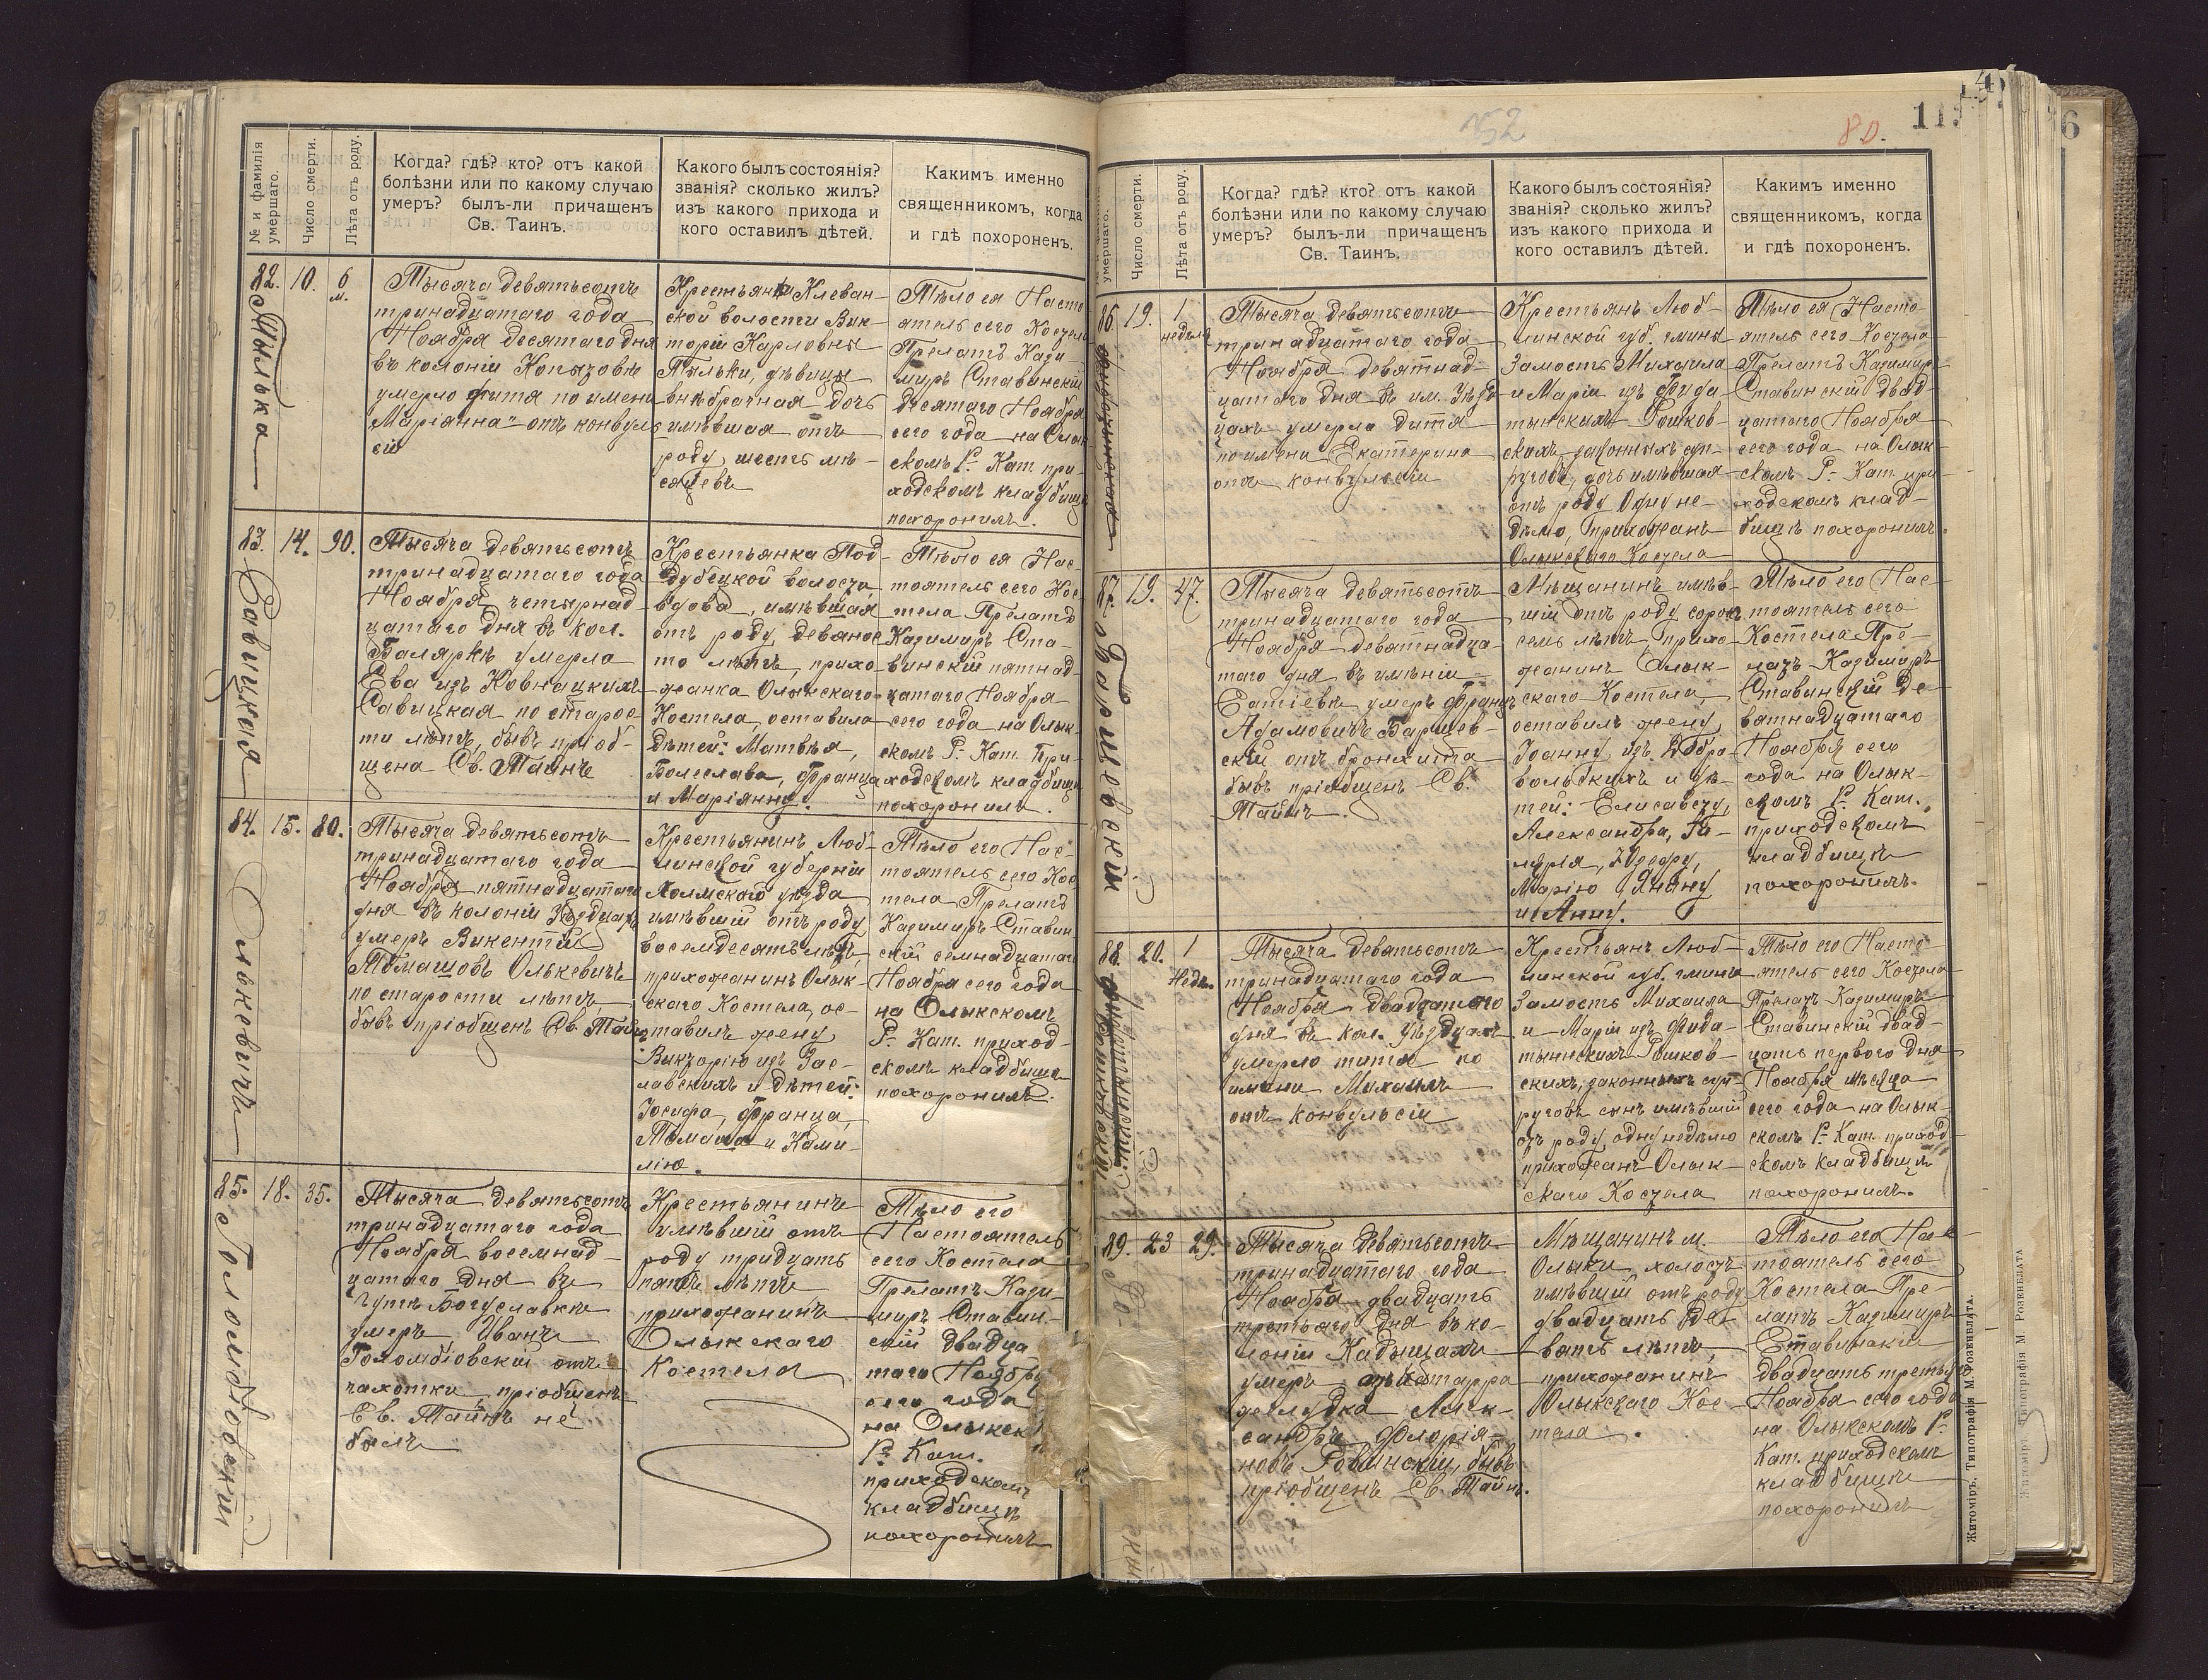 № и фамилія умершаго.
Число смерти.
Лѣта отъ роду.
Когда? гдѣ? кто? отъ какой
болѣзни или по какому случаю
умеръ? былъ-ли причащенъ
Св. Таинъ.
Какого былъ состоянія?
званія? сколько жилъ?
изъ какого прихода и
кого оставилъ дѣтей.
Какимъ именно
священникомъ, когда
и гдѣ похороненъ.
82.
Тылька
10.
6
м.
Тысяча девятьсотъ
тринадцатаго года
Ноября десятаго дня
въ колоніи Копызовъ
умерло дитя по имени
Маріянна" отъ конвуль
сіи
Клеван-
ской волости Вик-
торіи Карловны
Тыльки, дѣвицы
внѣбрачная дочь
имѣвшая отъ
роду шесть мѣ-
сяцевъ
Тѣло ея Насто
ятель сего Костела
Прелатъ Кази-
миръ Ставинскій
десятаго Ноября
сего года на Олык
скомъ Р. Кат. при-
ходскомъ кладбищѣ
похоронилъ.
83.
Савицкая
14.
90.
Тысяча девятьсотъ
тринадцатаго года
Ноября четырнад
цатаго дня въ кол.
Боляркѣ умерла
Ева изъ Ковнацкихъ
Савицкая по старос
ти лѣтъ, бывъ пріоб-
щена Св. Таинъ
Крестьянка Под-
дубецкой волости,
вдова, имѣвшая
отъ роду девянос
то лѣтъ, прихо-
жанка Олыкскаго
Костела, оставила
дѣтей: Матвѣя,
Болеслава, Франца
и Маріянну.
Тѣло ея Нас-
тоятель сего Кос
тела Прелатъ
Казимиръ Ста-
винскій пятнад-
цатаго Ноября
сего года на Олык-
скомъ Р. Кат. При-
ходскомъ кладбищѣ
похоронилъ.
84.
Олькевичъ
15.
80.
Тысяча девятьсотъ
тринадцатаго года
Ноября пятнадцатаго
дня въ колоніи Уѣздцахъ
умеръ Викентій
Томашовъ Олькевичъ
по старости лѣтъ,
бывъ пріобщенъ Св. Таинъ
Крестьянинъ Люб-
линской губерніи
Холмскаго уѣзда
имѣвшій отъ роду
восемдесятъ лѣтъ,
прихожанинъ Олык-
скаго Костела, ос-
тавилъ жену
Викторію изъ Зас-
лавскихъ и дѣтей:
Іосифа, Франца,
Томаша и Ками-
лію.
Тѣло его Нас-
тоятель сего Кос
тела Прелатъ
Казимиръ Ставин
скій семнадцатаго
Ноября сего года
на Олыкскомъ
Р. Кат. приход-
скомъ кладбищѣ
похоронилъ.
85.
Голомбіовскій
18.
35.
Тысяча девятьсотъ
тринадцатаго года
Ноября восемнад-
цатаго дня въ
Богуславкѣ
умеръ Иванъ
Голомбіовскій отъ
чахотки, пріобщенъ
Св. Таинъ не
былъ
Крестьянинъ
имѣвшій отъ
роду тридцать
пять лѣтъ
прихожанинъ
Олыкскаго
Костела
Тѣло его
Настоятель
сего Костела
Прелатъ Кази-
миръ Ставин-
скій двадца
таго Ноября
сего года
на Олыкск
Р. Кат.
приходскомъ
кладбищѣ
похоронилъ
352
80.
115
6
умершаго.
Число смерти.
Лѣта отъ роду.
Когда? гдѣ? кто? отъ какой
болѣзни или по какому случаю
умеръ? былъ-ли причащенъ
Св. Таинъ.
Какого былъ состоянія?
званія? сколько жилъ?
изъ какого прихода и
кого оставилъ дѣтей.
Какимъ именно
священникомъ, когда
и гдѣ похороненъ.
86.
19.
1
недѣля
Тысяча девятьсотъ
тринадцатаго года
Ноября девятнад-
цатаго дня въ им. Уѣзд-
цахъ умерла дитя
по имени Екатерина
отъ конвульсіи
Крестьянъ Люб-
линской губ. гмины
Замость Михаила
и Маріи изъ Фида-
тынскихъ Рошков-
скихъ законныхъ суп-
руговъ, дочь имѣвшая
отъ роду Одну не-
дѣлю, Прихожанъ
Олыкскаго Костела
Тѣло ея Насто-
ятель сего Костела
Прелатъ Казимиръ
Ставинскій двад-
цатаго Ноября
сего года на Олык-
скомъ Р. Кат. при-
ходскомъ клад-
бищѣ похоронилъ.
87.
Баршевскій
19.
47.
Тысяча девятьсотъ
тринадцатаго года
Ноября девятнадца-
таго дня въ имѣніи
умеръ Францъ
Адамовичъ Баршев-
скій отъ бронхита
бывъ пріобщенъ Св.
Таинъ.
Мѣщанинъ имѣв-
шій отъ роду сорокъ
семь лѣтъ, прихо-
жанинъ Олык-
скаго Костела,
оставилъ жену
Іоанну изъ Добро-
вольскихъ и дѣ-
тей: Елисавету,
Александра,
Іосефу,
Марію Янину
и Анну.
Тѣло его Нас-
тоятель сего
Костела Пре-
латъ Казимиръ
Ставинскій де-
вятнадцатаго
Ноября сего
года на Олык-
скомъ Р. Кат.
приходскомъ
кладбищѣ
похоронилъ.
88.
20.
1
Недѣл.
Тысяча девятьсотъ
тринадцатаго года
Ноября двадцатаго
дня въ кол. Уѣздцахъ
умерло дитя по
имени Михаилъ
отъ конвульсіи
Крестьянъ Люб-
линской губ. гмины
Замость Михаила
и Маріи изъ Фида-
тынскихъ Рошков-
скихъ, законныхъ суп-
руговъ сынъ имѣвшій
отъ роду одну недѣлю
прихожанъ Олык-
скаго Костела
Тѣло его Насто-
ятель сего Костела
Прелатъ Казимиръ
Ставинскій двад-
цать перваго дня
Ноября мѣсяца
сего года на Олык-
скомъ Р. Кат. приход-
скомъ кладбищѣ
похоронилъ.
89.
23
29.
Тысяча девятьсотъ
тринадцатаго года
Ноября двадцать
третьяго дня въ ко-
лоніи Кадыщахъ
умеръ катарра
желудка Алек-
сандръ Флорія-
новъ Ровинскій, бывъ
пріобщенъ Св. Таинъ.
Мѣщанинъ м.
Олыки, холостъ
имѣвшій отъ роду
двадцать де-
вять лѣтъ,
прихожанинъ
Олыкскаго Кос-
тела.
Тѣло его Нас-
тоятель сего
Костела Пре-
латъ Казимиръ
Ставинскій
двадцать третьяго
Ноября сего года
на Олыкскомъ Р.
Кат. приходскомъ
кладбищѣ
похоронилъ
Житоміръ. Типографія М. Розенблата.
Типографія М. Розенблата